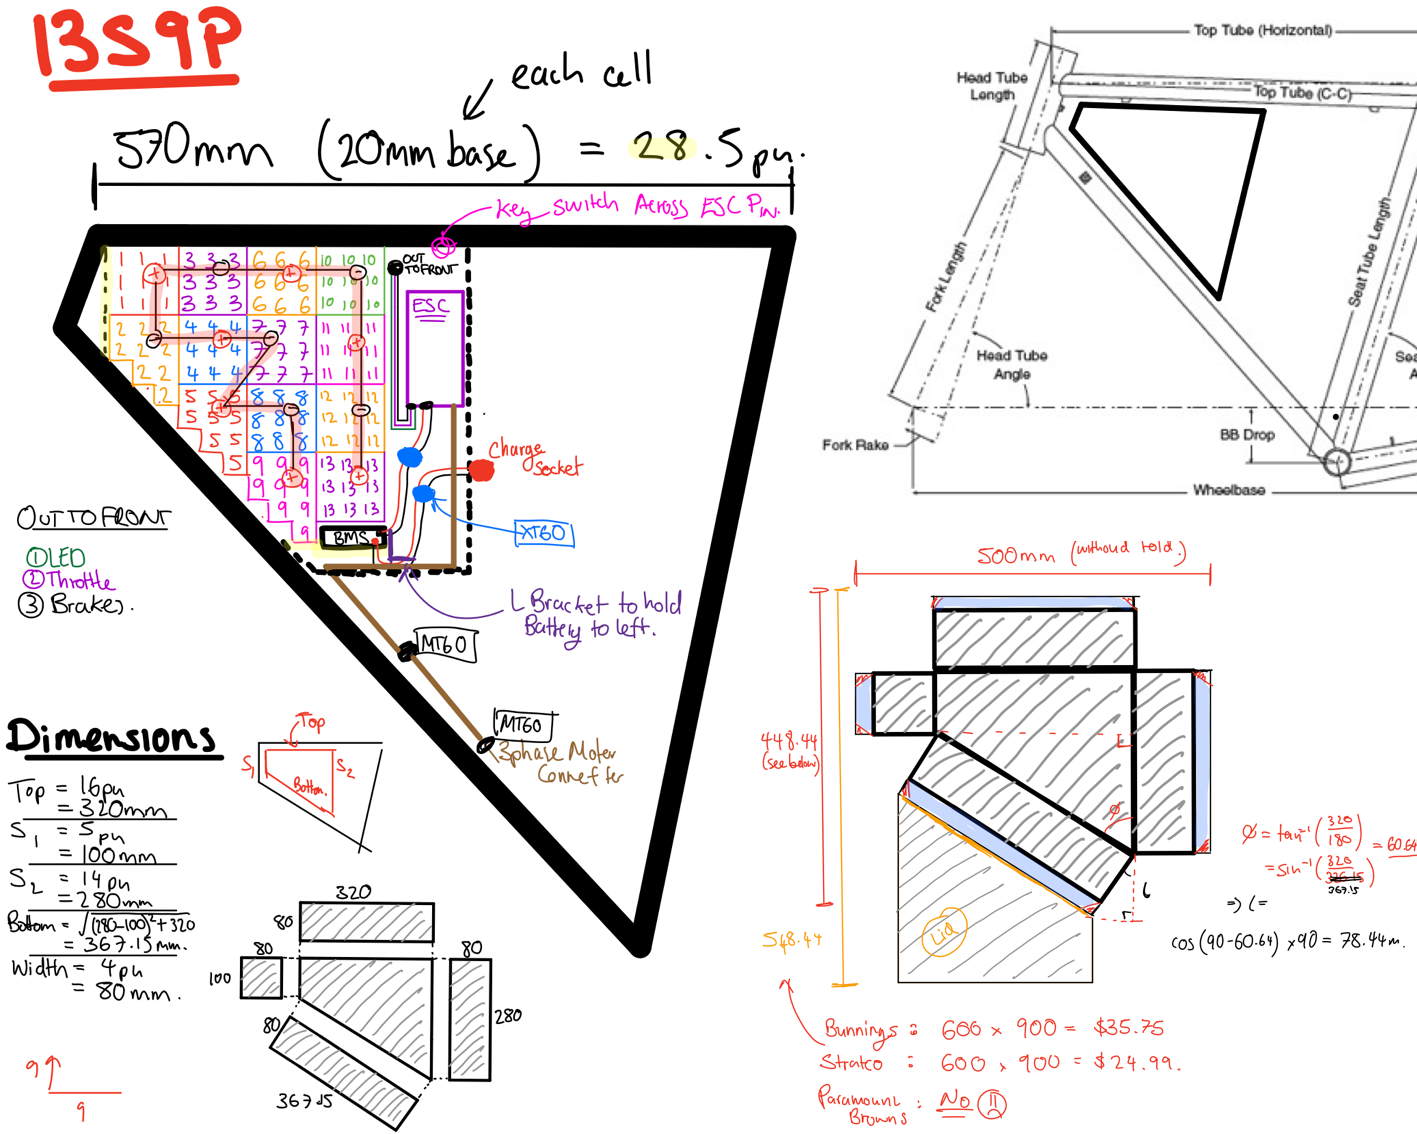 13S9P
each cell
570mm (20mm base) = 28.5pu.
key switch Across ESC PIN.
1 1 1 3 3 3 6 6 6 10 10 10
1 1 3 3 3 6 6 6 10 10 10
1 1 3 3 3 6 6 10 10 10
2 2 2 4 4 4 7 7 7 11 11 11
2 2 2 4 4 4 7 7 7 11 11 11
2 2 4 4 4 7 7 7 11 11 11
2 5 5 5 8 8 8 12 12 12
5 5 5 8 8 8 12 12 12
5 5 8 8 8 12 12 12
5 9 9 9 13 13 13
9 9 9 13 13 13
9 9 13 13 13
9
+ - + -
- + -
+
+ - -
+ +
OUT
TO FRONT
ESC
BMS
Charge
Socket
XT60
L Bracket to hold
Battery to left.
MT60
MT60
3phase Motor
Connector
OUT TO FRONT
① LED
② Throttle
③ Brakes.
Dimensions
Top = 16pu
= 320mm
S1 = 5pu
= 100mm
S2 = 14pu
= 280mm
Bottom = √(280-100)²+320
= 367.15mm.
Width = 4pu
= 80mm.
Top
S1
S2
Bottom.
320
80
80
80
100
280
80
367.15
9
9
Top Tube (Horizontal)
Head Tube
Length
Top Tube (C-C)
Fork Length
Seat Tube Length
Head Tube
Angle
Sea
A
BB Drop
Fork Rake
Wheelbase
500mm (without fold.)
448.44
(see below)
548.44
L
Ø
Lid
Ø = tan⁻¹(320/180) = 60.64
= sin⁻¹(320/367.15)
=> L =
cos(90-60.64) x 90 = 78.44m.
Bunnings : 600 x 900 = $35.75
Stratco : 600 x 900 = $24.99.
Paramount
Browns : No